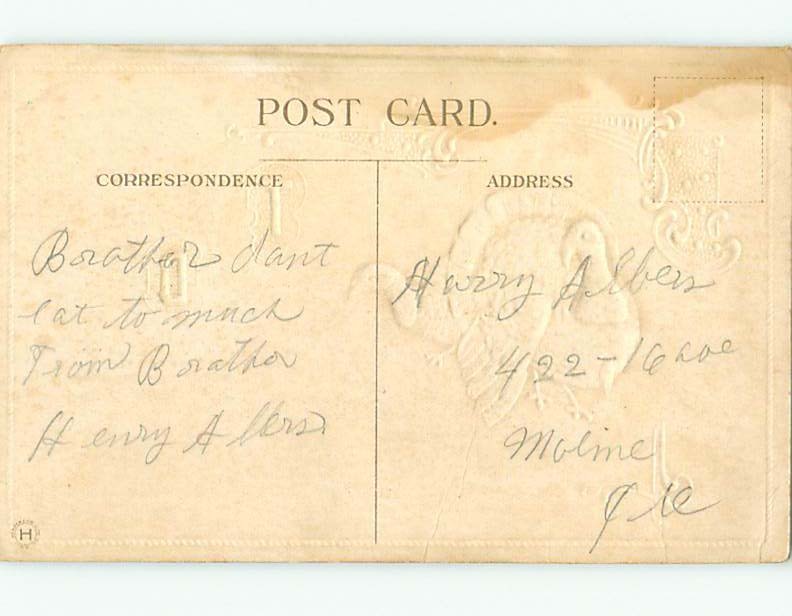 POST CARD.
CORRESPONDENCE
ADDRESS
Borather dant
eat to much
From Borather
Henry Albers
Harry Albers
422-16 ave
Moline
Ill
H